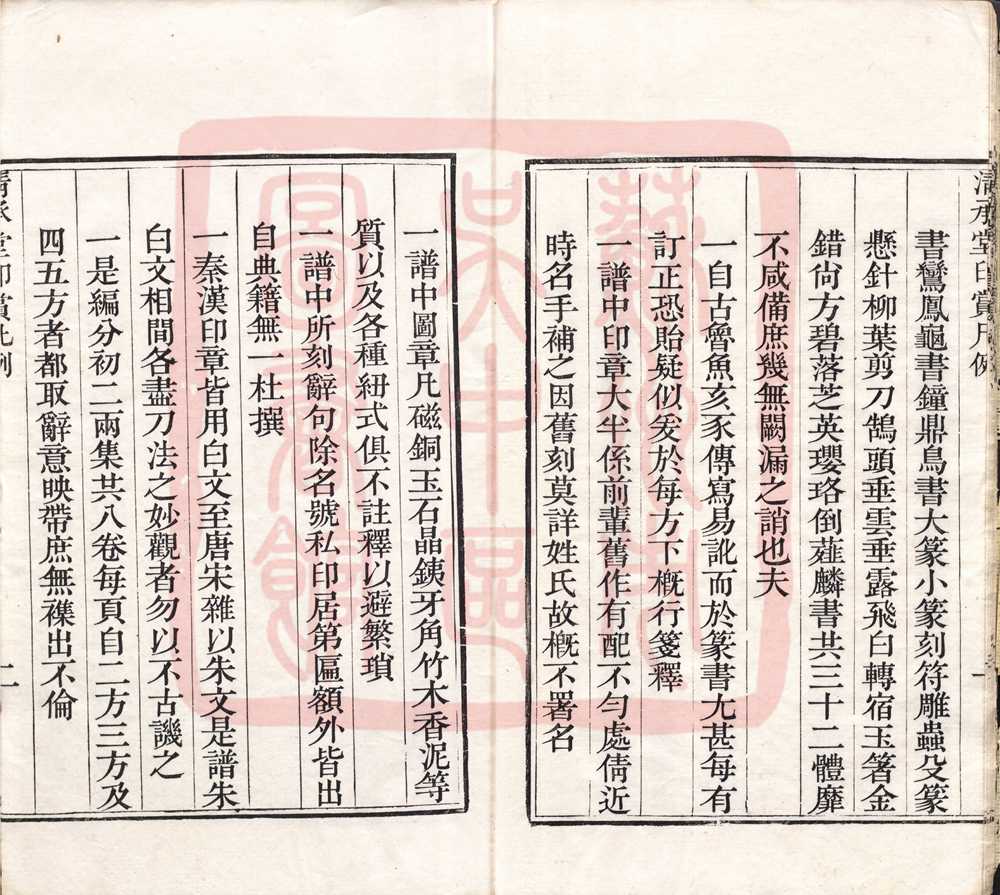 清承堂印賞凡例
書鸞鳳龜書鐘鼎鳥書大篆小篆刻符雕蟲殳篆
懸針柳葉剪刀鵠頭垂雲垂露飛白轉宿玉箸金
錯尙方碧落芝英瓔珞倒薤麟書共三十二體靡
不咸備庶幾無闕漏之誚也夫
一自古魯魚亥豕傳寫易訛而於篆書尢甚每有
訂正恐貽疑似爰於每方下槪行箋釋
一譜中印章大半係前輩舊作有配不勻處倩近
時名手補之因舊刻莫詳姓氏故槪不署名
一譜中圖章凡磁銅玉石晶銕牙角竹木香泥等
質以及各種紐式俱不註釋以避繁瑣
一譜中所刻辭句除名號私印居第匾額外皆出
自典籍無一杜撰
一秦漢印章皆用白文至唐宋雜以朱文是譜朱
白文相間各盡刀法之妙觀者勿以不古譏之
一是編分初二兩集共八卷每頁自二方三方及
四五方者都取辭意映帶庶無襍出不倫
清承堂印賞凡例
二